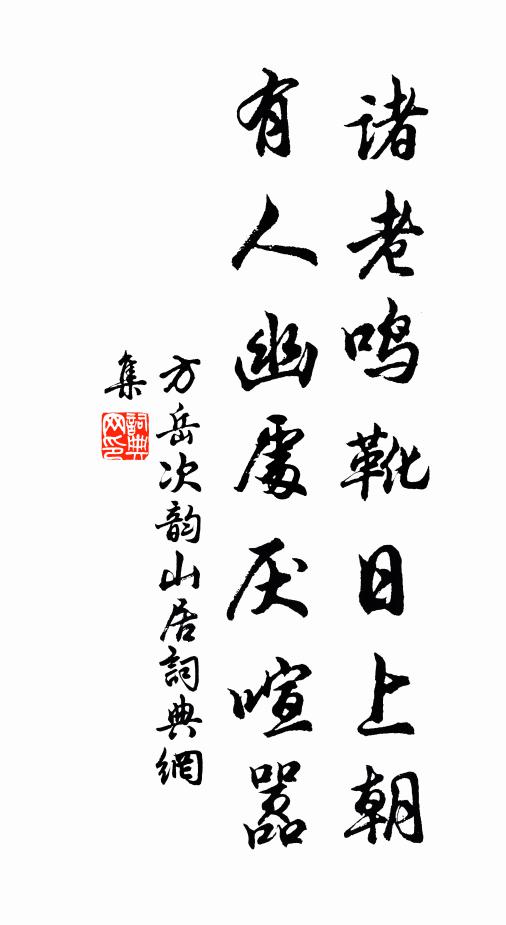 诸老鸣靴日上朝
有人幽处厌喧嚣
方岳次韵山居詞典網
集
詞典网印